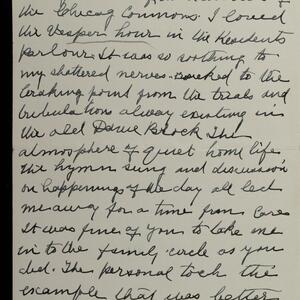 the Chicago Commons. I loved
the Vesper hour in the Residents
parlour. It was so soothing to
my shattered nerves. racked to the
breaking point from the trials and
tribulations always existing in
the old Block. The
atmosphere of quiet home life
the hymn sung and discussion
on happenings of the day all led
me away for a time from Cares
It was fine of you to take me
in to the family circle as you
did. The personal touch the
example that was better